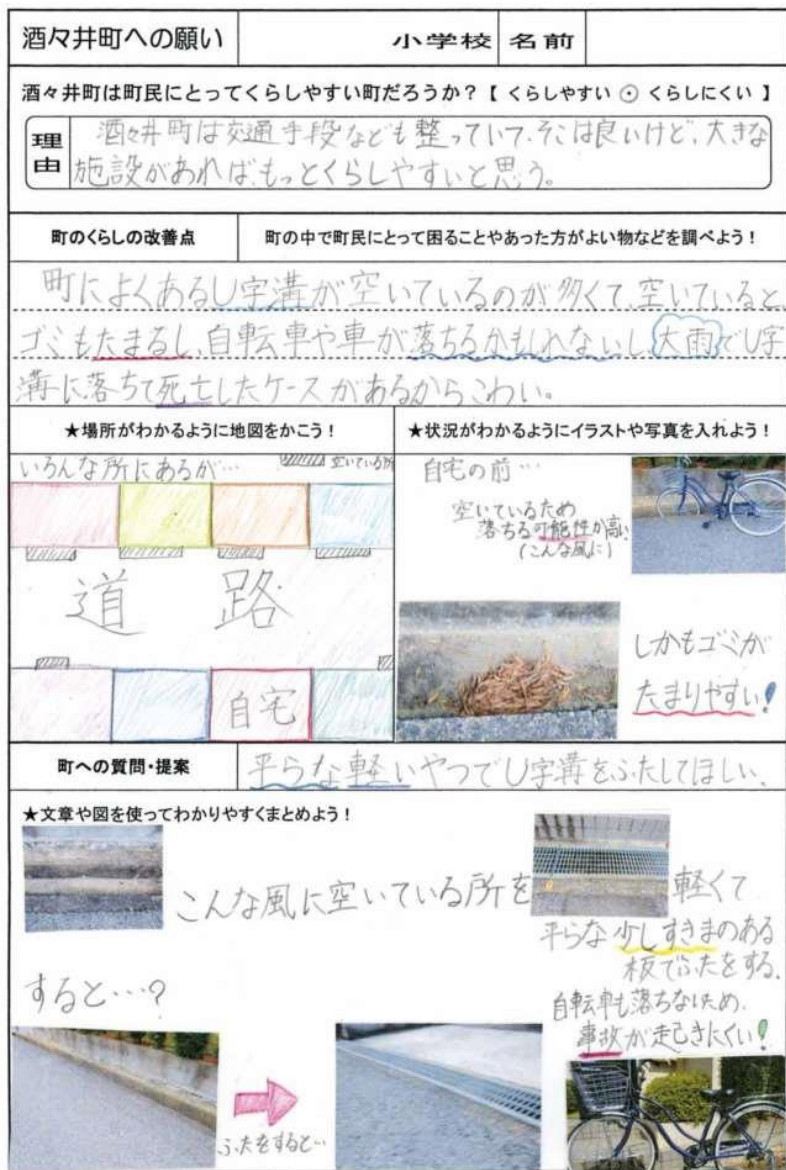 酒々井町への願い 小学校 名前
酒々井町は町民にとってくらしやすい町だろうか？【 くらしやすい ⊙ くらしにくい 】
理由
酒々井町は交通手段なども整っていて、そこは良いけど、大きな
施設があれば、もっとくらしやすいと思う。
町のくらしの改善点 町の中で町民にとって困ることやあった方がよい物などを調べよう！
町によくあるU字溝が空いているのが多くて、空いていると、
ゴミもたまるし、自転車や車が落ちるかもしれないし、大雨でU字
溝に落ちて死亡したケースがあるからこわい。
★場所がわかるように地図をかこう！
いろんな所にあるが…
空いている所
道路
自宅
★状況がわかるようにイラストや写真を入れよう！
自宅の前…
空いているため
落ちる可能性が高い
(こんな風に)
しかもゴミが
たまりやすい!
町への質問・提案 平らな軽いやつでU字溝をふたしてほしい、
★文章や図を使ってわかりやすくまとめよう！
こんな風に空いている所を
軽くて
平らな少しすきまのある
板でふたをする。
すると…?
自転車も落ちないため、
事故が起きにくい!
ふたをすると…